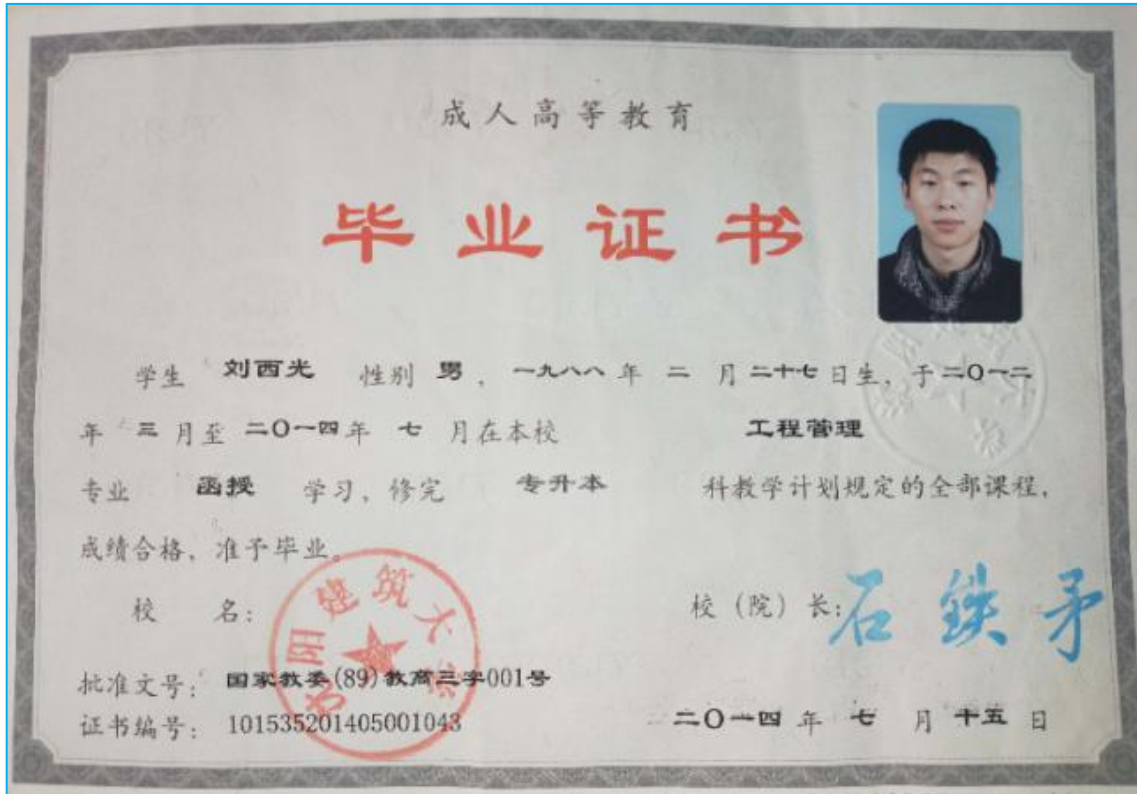 成人高等教育
毕业证书
学生 刘西光 性别 男，一九八八年 二 月二十七日生，于二O一二
年 三月至 二O一四年 七 月在本校 工程管理
专业 函授 学习，修完 专升本 科教学计划规定的全部课程，
成绩合格，准予毕业。
校 名： 校（院）长：石铁矛
沈阳建筑大学
批准文号：国家教委(89)教高三字001号
证书编号：101535201405001043 二O一四 年 七 月 十五 日